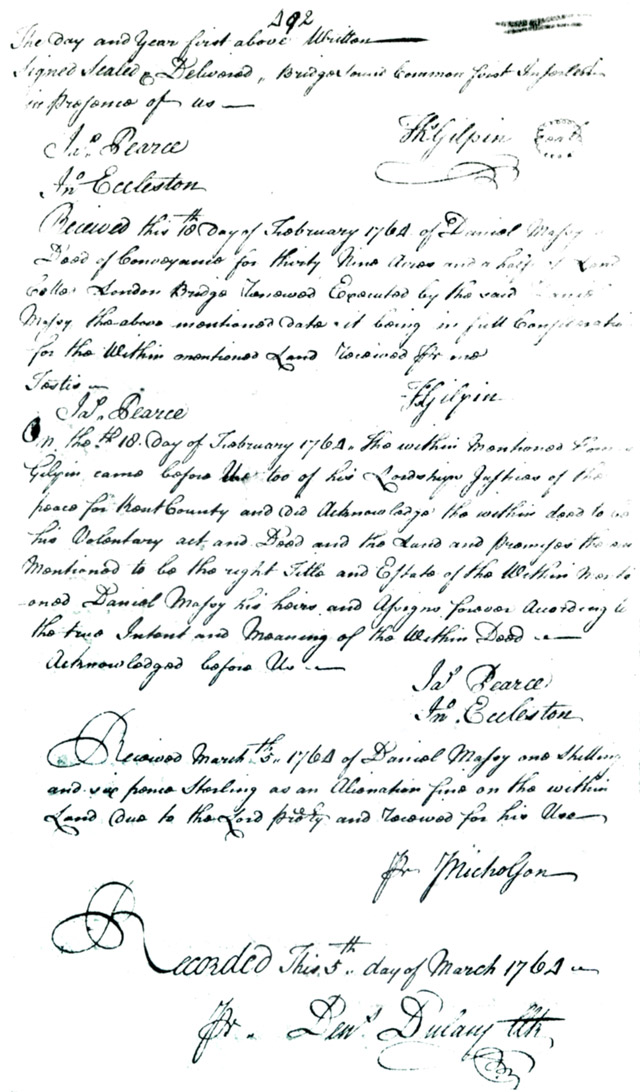 492
The day and Year first above Written
Signed Sealed & Delivered
in Presence of us
Thos Gilpin
Jas. Pearce
Jno Eccleston
Received this 18th Day of February 1764 of Daniel Massy
Deed of Conveyance for thirty Nine Acres and a half of Land
London Bridge Renewed Executed by the said
Massy the above mentioned date it being in full Consideration
for the Within mentioned Land Received Pr me
Testis
Gilpin
Jas. Pearce
On the 18th Day of February 1764 The within Mentioned
Gilpin came before Us too of his Lordships Justices of the
peace for Kent County and did Acknowledge the within deed to be
his Volentary act and Deed and the Land and premises
Mentioned to be the right Title and Estate of the Within Menti
oned Daniel Massy his heirs and Assigns forever According to
the true Intent and Meaning of the Within Deed
Acknowledged before Us
Jas. Pearce
Jno. Eccleston
Received March 5th 1764 of Daniel Massy one Shilling
and six pence Sterling as an Alienation fine on the within
Land due to the Lord Propty and received for his Use
Pr Nicholson
Recorded This 5th day of March 1764
Pr Dens. Dulany Clk